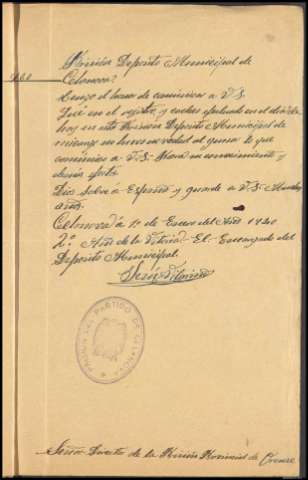 Prision Deposito Municipal de
Celanova
Tengo el honor de comunicar a V.S.
Que en el registro y cacheo efectuado en el dia de
hoy en esta Prision Deposito Municipal de
novedad alguna lo que
comunico a V.S. para su conocimiento y
demás efectos
Dios salve a España y guarde a V.S. Muchos
años.
Celanova a 1º de Enero del Año 1940
2º Año de la Vitoria El Encargado del
Deposito Municipal
PRISION DEL PARTIDO DE CELANOVA
Señor Director de la Prision Provincial de Orense